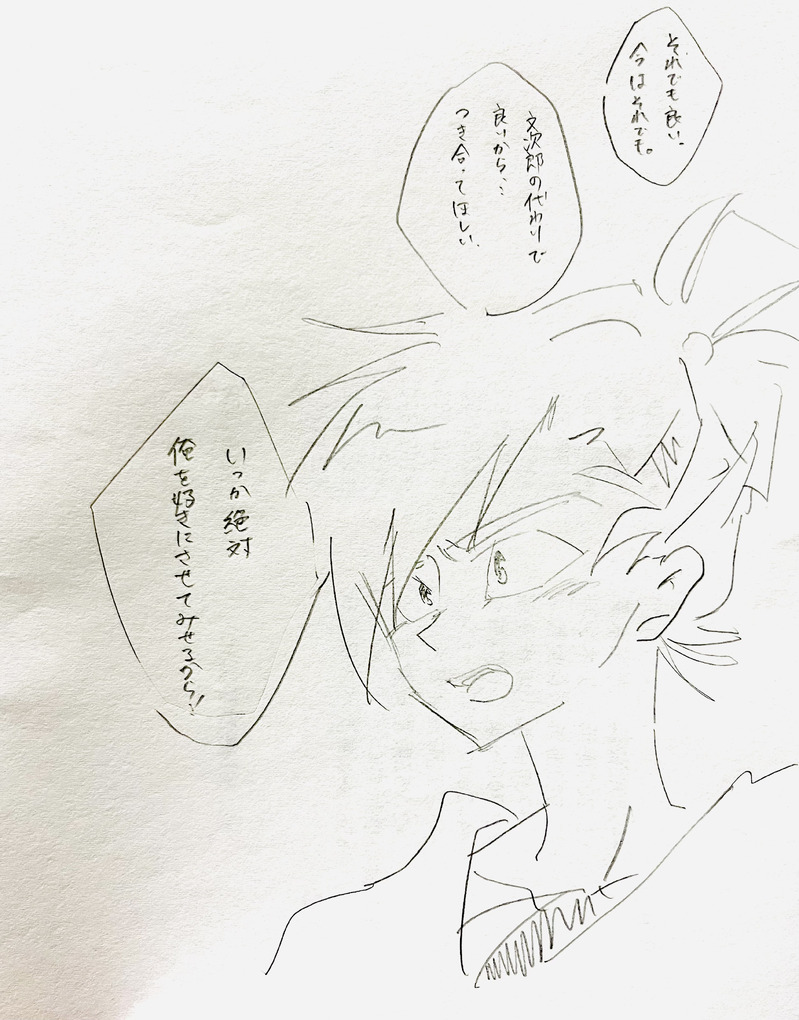 それでも良い。
今はそれでも。
文次郎の代わりで
良いから…
つき合ってほしい。
いつか絶対
俺を好きにさせてみせるから!